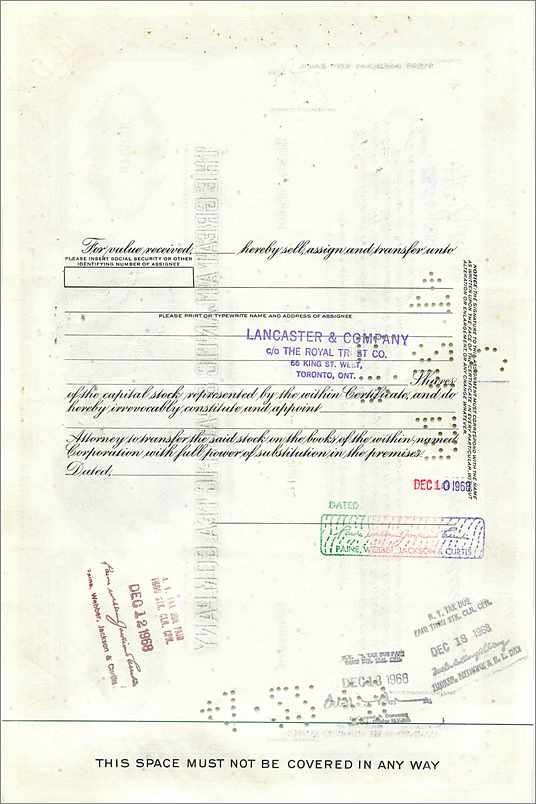 For value received, hereby sell, assign and transfer unto
PLEASE INSERT SOCIAL SECURITY OR OTHER
IDENTIFYING NUMBER OF ASSIGNEE
PLEASE PRINT OR TYPEWRITE NAME AND ADDRESS OF ASSIGNEE
LANCASTER & COMPANY
c/o THE ROYAL TRUST CO.
66 KING ST. WEST,
TORONTO, ONT.
Shares
of the capital stock represented by the within Certificate, and do
hereby irrevocably constitute and appoint
Attorney to transfer the said stock on the books of the within named
Corporation with full power of substitution in the premises.
Dated,
NOTICE: THE SIGNATURE TO THIS ASSIGNMENT MUST CORRESPOND WITH THE NAME
AS WRITTEN UPON THE FACE OF THE CERTIFICATE IN EVERY PARTICULAR, WITHOUT
ALTERATION OR ENLARGEMENT OR ANY CHANGE WHATEVER.
DEC 10 1968
DATED
PAINE, WEBBER, JACKSON & CURTIS
Paine, Webber, Jackson & Curtis
DEC 12 1968
N. Y. TAX DUE PAID
THRU STK. CLR. CPR.
N. Y. TAX DUE
PAID THRU STK. CLR. CPR.
DEC 18 1968
DEC 13 1968
THIS SPACE MUST NOT BE COVERED IN ANY WAY